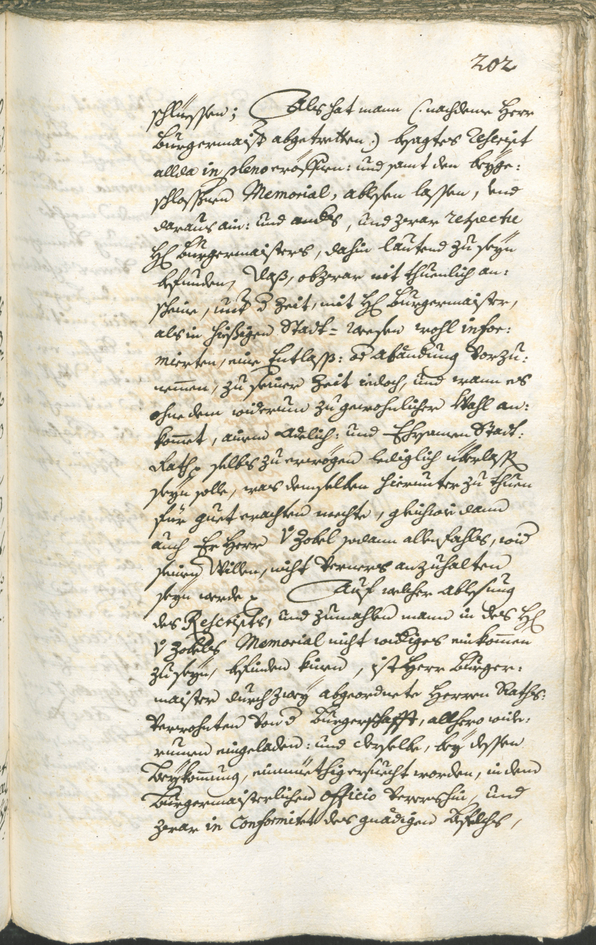 202
schlüessen; Als hat mann (: nachdeme Herr
Burgermaist abgetretten :) besagtes Rescript
allda in pleno eröffnen: und samt den beyge:
schlossnen Memorial, ablesen lassen, und
daraus ain: und anders, und zwar respective
H: Burgermaisters, dahin lautend zu seyn
befunden, Daß, obzwar nit thuenlich an:
scheine, mit d Zeit, mit H: Burgermaister,
als in hießigen Stadt= Weesen wohl infor:
mierten, eine Entlass: od Abändung vorzu:
nemmen, zu seiner Zeit iedoch, und wann es
ohne dem widerum zu gewohnlicher Wahl an:
kommet, ainem Adelich: und Ehrsamen Stadt:
Rath selbs zu erwögen lediglich überlassn
seyn solle, was demselben hierunter zu thuen
für guet erachten mechte, gleichwie dann
auch Er Herr v Zobel sodann allenfahls, wid
seinen Willen, nicht verners anzuhalten
seyn werde. Auf welcher Ablesung
des Rescripts, und zumahlen mann in des H:
v Zobels Memorial nicht widriges einkommen
zu seyn, befinden kunen, ist Herr Burger:
maister durch zwey abgeordnete Herren Raths:
Verwohnten von d Burgerschafft, allhero wide:
rumen eingeladen: und derselbe, bey dessen
Beykommung, einmüethig ersucht worden, in dem
Burgermaisterlichen Officio vorershin, und
zwar in Conformitet des gnädigen Befelchs,